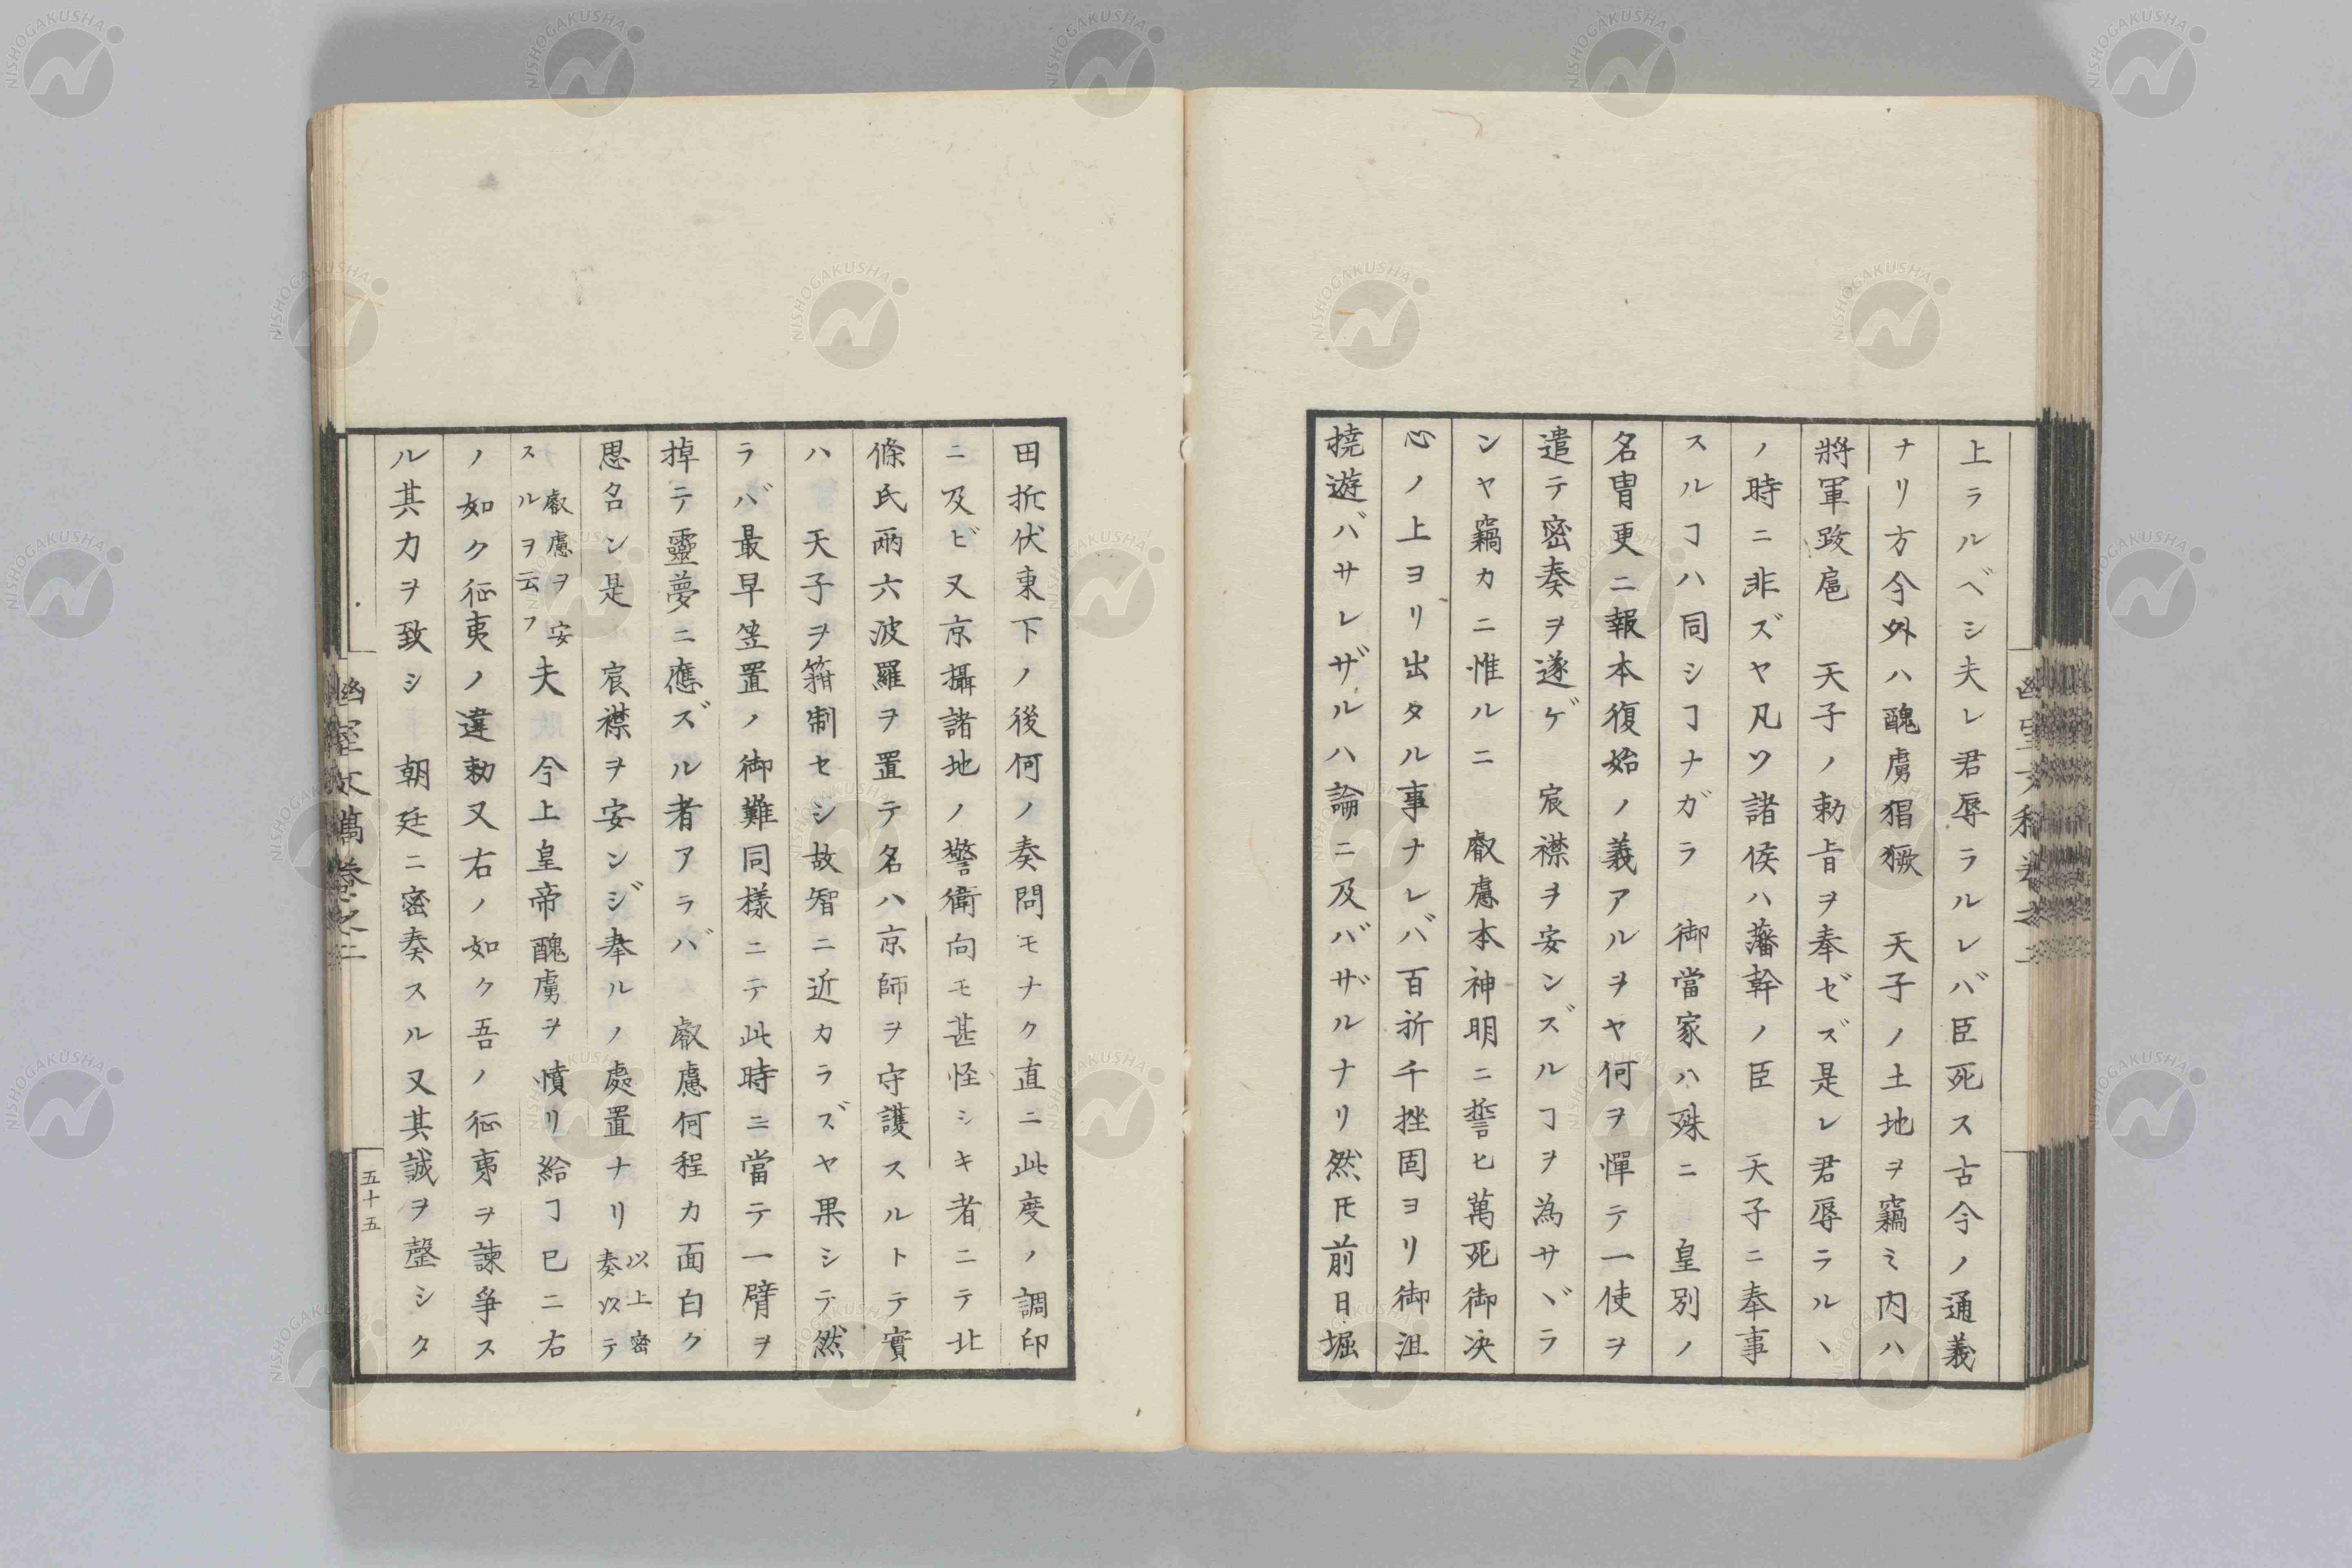 上ラルベシ夫レ君辱ラルレバ臣死ス古今ノ通義
ナリ方今外ハ醜虜猖獗　天子ノ土地ヲ竊ミ内ハ
將軍跋扈　天子ノ勅旨ヲ奉ゼズ是レ君辱ラルヽ
ノ時ニ非ズヤ凡ソ諸侯ハ藩幹ノ臣　天子ニ奉事
スルヿハ同シヿナガラ　御當家ハ殊ニ　皇別ノ
名冑更ニ報本復始ノ義アルヲヤ何ヲ憚テ一使ヲ
遣テ密奏ヲ遂ゲ　宸襟ヲ安ンズルヿヲ為サヾラ
ンヤ竊カニ惟ルニ　叡慮本神明ニ誓ヒ萬死御决
心ノ上ヨリ出タル事ナレバ百折千挫固ヨリ御沮
撓遊バサレザルハ論ニ及バザルナリ然𪜈前日堀
田折伏東下ノ後何ノ奏問モナク直ニ此度ノ調印
ニ及ビ又京攝諸地ノ警衛向モ甚怪シキ者ニテ北
條氏兩六波羅ヲ置テ名ハ京師ヲ守護スルトテ實
ハ　天子ヲ箝制セシ故智ニ近カラズヤ果シテ然
ラバ最早笠置ノ御難同樣ニテ此時ニ當テ一臂ヲ
掉テ靈夢ニ應ズル者アラバ　叡慮何程カ面白ク
思名ン是　宸襟ヲ安ンジ奉ルノ處置ナリ以上密奏以テ
叡慮ヲ安スルヲ云フ夫　今上皇帝醜虜ヲ憤リ給ヿ已ニ右
ノ如ク征夷ノ違勅又右ノ如ク吾ノ征夷ヲ諫爭ス
ル其力ヲ致シ　朝廷ニ密奏スル又其誠ヲ罄シタ
幽室文稾卷之二
五十五